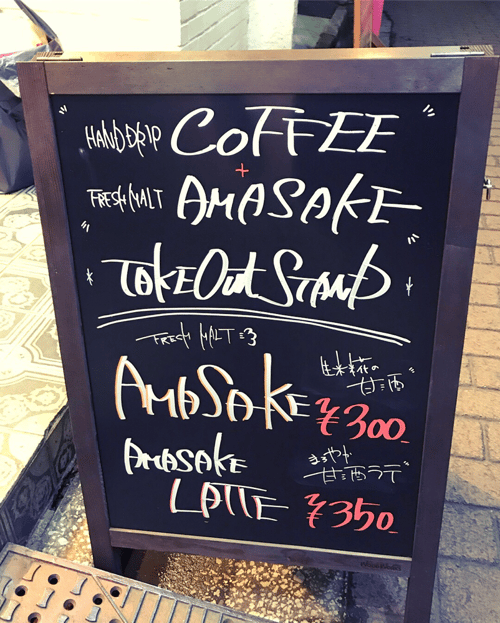 HANDDRIP COFFEE
+
FRESH MALT AMASAKE
TAKEOut STAND
FRESH MALT
AMASAKE
生米糀の
甘酒
¥300
AMASAKE
LATTE
まろやか
甘酒ラテ
¥350